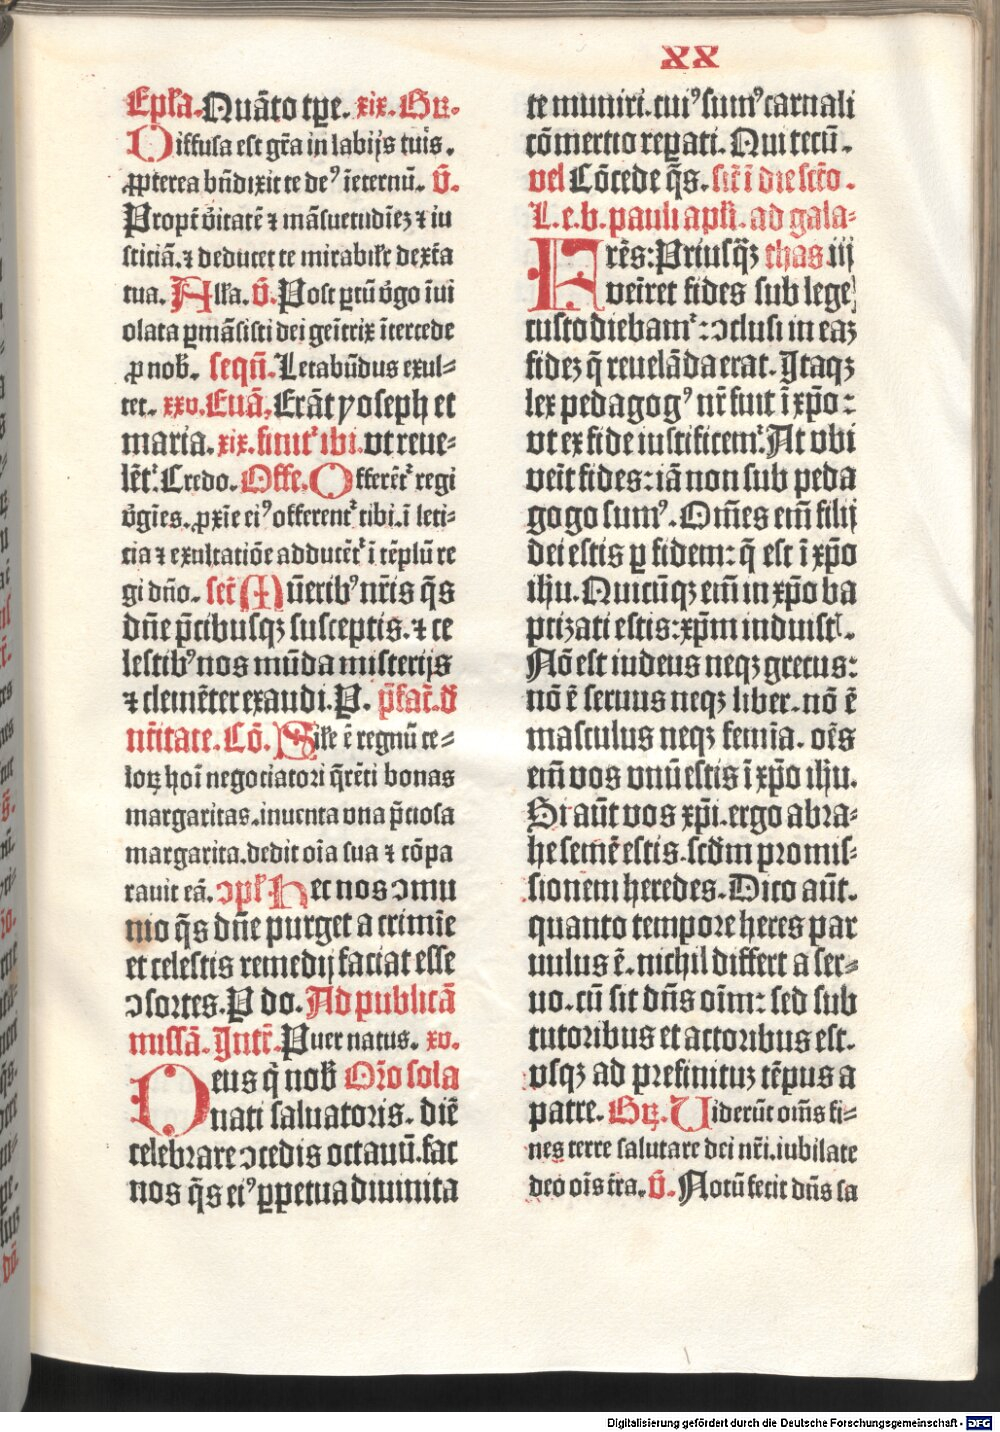 XX
Ep̄la. Quāto tꝑe. xix. Gꝝ.
Diffusa est gr̄a in labijs tuis.
ꝓpterea bn̄dixit te deꝰ ī eternū. v̄.
Propt̄ v̄itatē ⁊ māsuetudīeꝫ ⁊ iu
sticiā. ⁊ deducet te mirabilr̄ dext̄a
tua. Alla. v̄. Post ꝑtū v̄go īui
olata ꝑmāsisti dei geītrix ītercede
ꝓ nob̄. sequn̄. Letabūdus exul⸗
tet. xxv. Euā. Erāt yoseph et
maria. xix. finit᷑ ibi. vt reue⸗
lēt᷑. Credo. Offe. Offerēt᷑ regi
v̄gīes. ꝓxīe eiꝰ offerent᷑ tibi. ī leti⸗
cia ⁊ exultatiōe adducēt᷑ ī tēplū re
gi dn̄o. secr̄ Mūeribꝰ nr̄is q̄s
dn̄e p̄cibusqꝫ susceptis. ⁊ ce
lestibꝰ nos mūda misterijs
⁊ clemēter exaudi. P. p̄fac̄. d̄
nr̄itate. Cō. Sile ē regnū ce⸗
loꝝ hoī negociatori q̄rēti bonas
margaritas. inuenta vna p̄ciosa
margarita. dedit oīa sua ⁊ cōpa
rauit eā. ↄpl̄ Hec nos ↄmu
nio q̄s dn̄e purget a crimīe
et celestis remedij faciat esse
ↄsortes. P do. Ad publicā
missā. Intr̄. Puer natus. xv.
Deus q̄ nob̄ Or̄o sola
nati saluatoris. diē
celebrare ↄcedis octauū. fac
nos q̄s eiꝰ ꝑpetua diuinita
te muniri. cuiꝰ sumꝰ carnali
cōmertio reꝑati. Qui tecū.
vel Cōcede q̄s. sic̄ ī die sct̄o.
L. e. b. pauli apl̄i. ad gala⸗
Frēs: Priusq̄ꝫ thas iij
veīret fides sub lege
custodiebam᷑: ↄclusi in eaꝫ
fideꝫ q̄ reuelāda erat. Itaqꝫ
lex pedagogꝰ nr̄ fuit ī xp̄o:
vt ex fide iustificem᷑. At vbi
veīt fides: iā non sub peda
gogo sumꝰ. Om̄es em̄ filij
dei estis ꝑ fidem: q̄ est ī xp̄o
ihu. Quicūqꝫ em̄ in xp̄o ba
ptizati estis: xp̄m induist̄.
Nō est iudeus neqꝫ grecus:
nō ē seruus neqꝫ liber. nō ē
masculus neqꝫ femīa. oēs
em̄ vos vnū estis ī xp̄o ihu.
Si aūt vos xp̄i. ergo abra⸗
he semē estis. scd̄m promis⸗
sionem heredes. Dico aūt.
quanto tempore heres par
uulus ē. nichil differt a ser⸗
uo. cū sit dn̄s oīm: sed sub
tutoribus et actoribus est.
vsqꝫ ad prefinituꝫ tēpus a
patre. Gꝝ. Viderūt om̄s fi⸗
nes terre salutare dei nr̄i. iubilate
deo oīs t̄ra. v̄. Notū fecit dn̄s sa
Digitalisierung gefördert durch die Deutsche Forschungsgemeinschaft - DFG